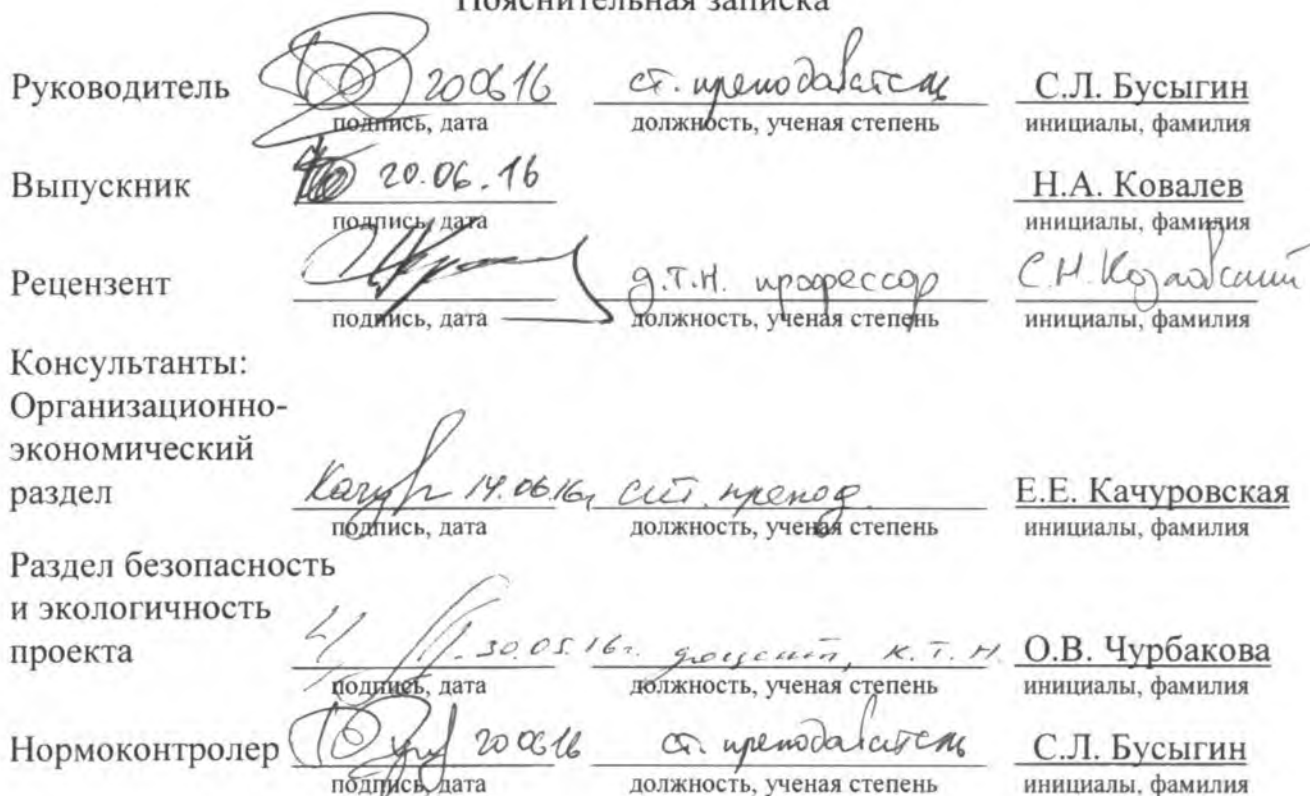 Пояснительная записка
Руководитель 20.06.16 ст. преподаватель С.Л. Бусыгин
подпись, дата должность, ученая степень инициалы, фамилия
Выпускник 20.06.16 Н.А. Ковалев
подпись, дата инициалы, фамилия
Рецензент д.т.н. профессор С.Н. Козловский
подпись, дата должность, ученая степень инициалы, фамилия
Консультанты:
Организационно-
экономический
раздел 14.06.16г ст. препод. Е.Е. Качуровская
подпись, дата должность, ученая степень инициалы, фамилия
Раздел безопасность
и экологичность
проекта 30.05.16г. доцент, к.т.н. О.В. Чурбакова
подпись, дата должность, ученая степень инициалы, фамилия
Нормоконтролер 20.06.16 ст. преподаватель С.Л. Бусыгин
подпись, дата должность, ученая степень инициалы, фамилия